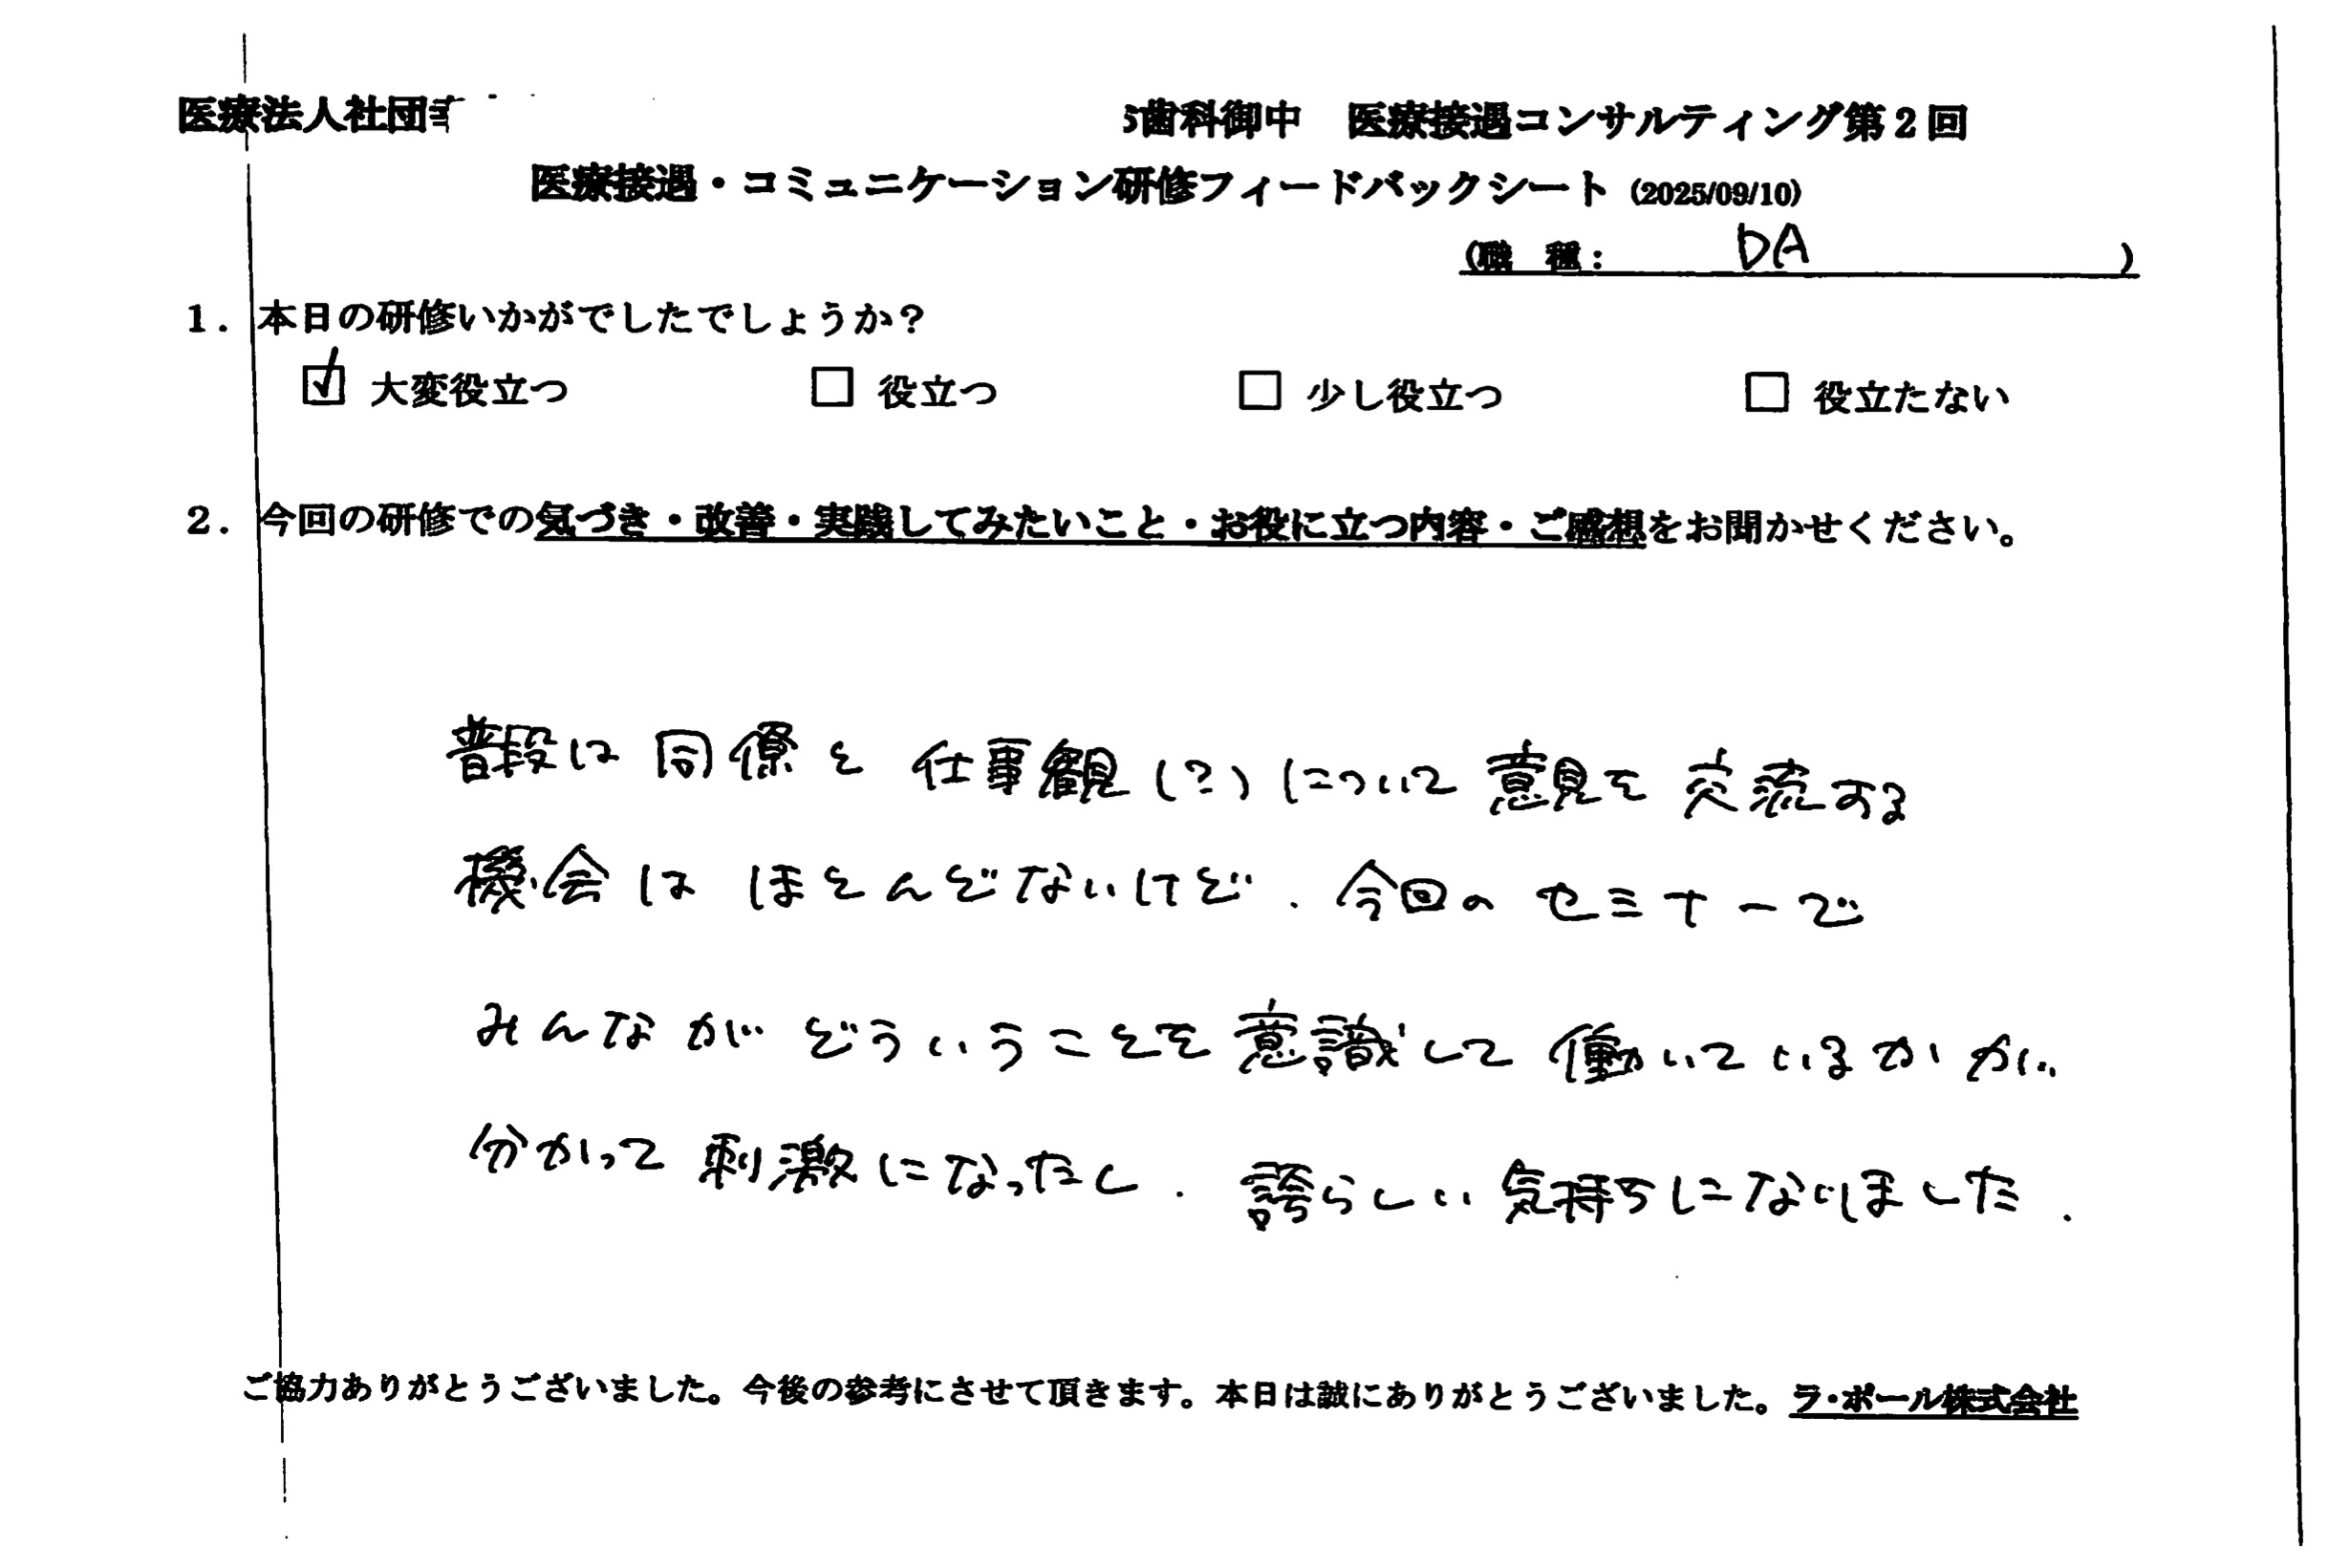 医療法人社団
歯科御中　医療接遇コンサルティング第2回
医療接遇・コミュニケーション研修フィードバックシート (2025/09/10)
(職　種：　DA　)
1．本日の研修いかがでしたでしょうか？
☑ 大変役立つ　□ 役立つ　□ 少し役立つ　□ 役立たない
2．今回の研修での気づき・改善・実践してみたいこと・お役に立つ内容・ご感想をお聞かせください。
普段は同僚と仕事観(?)について意見を交流する
機会はほとんどないけど、今回のセミナーで
みんながどういうことを意識して働いているかが
分かって刺激になったし、誇らしい気持ちになりました.
ご協力ありがとうございました。今後の参考にさせて頂きます。本日は誠にありがとうございました。ラ・ポール株式会社